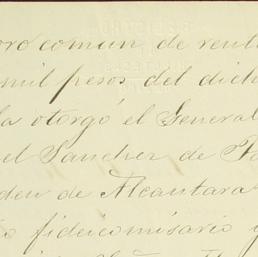 oro comun de
mil pesos del
la otorgó el General
el Sanchez de
den de Alcantara
fideicomisario y